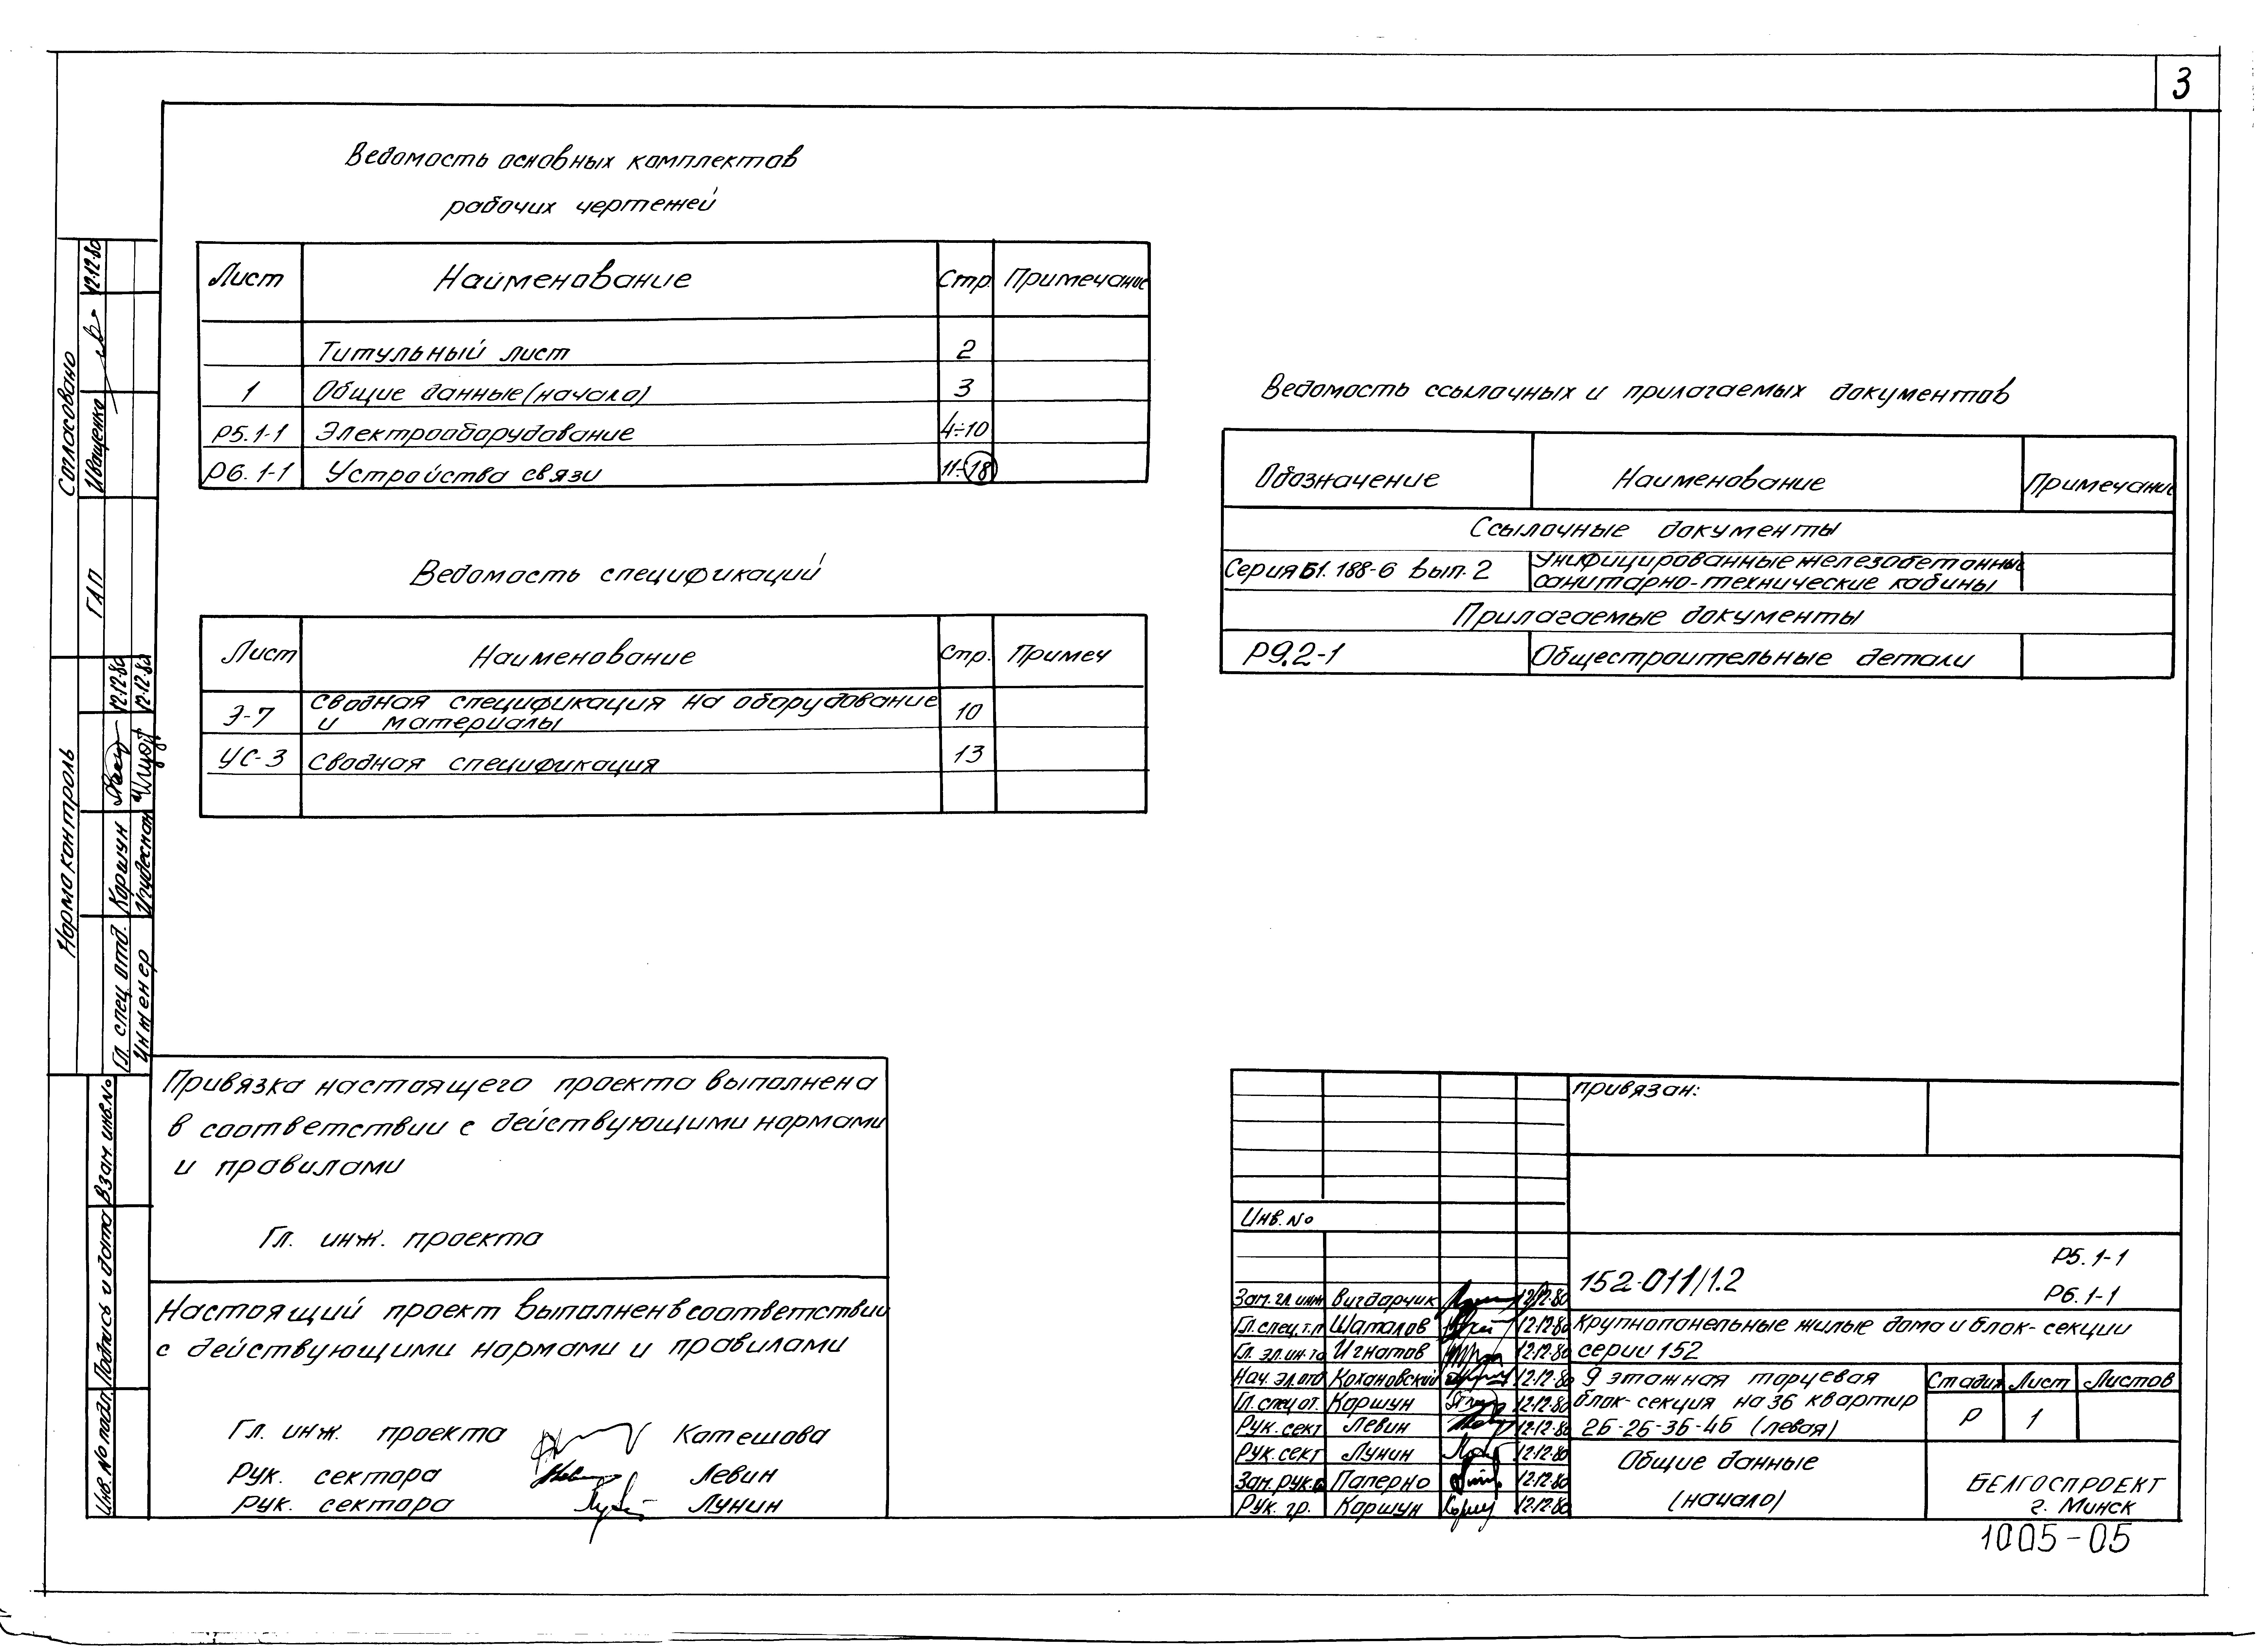 3
Ведомость основных комплектов
рабочих чертежей
Лист Наименование Стр. Примечание
Титульный лист 2
1 Общие данные (начало) 3
Р5.1-1 Электрооборудование 4÷10
Р6.1-1 Устройства связи 11÷18
Ведомость спецификаций
Лист Наименование Стр. Примеч
Э-7 Сводная спецификация на оборудование
и материалы 10
УС-3 Сводная спецификация 13
Ведомость ссылочных и прилагаемых документов
Обозначение Наименование Примечание
Ссылочные документы
Серия Б1.188-6 вып. 2 Унифицированные железобетонные
санитарно-технические кабины
Прилагаемые документы
Р9.2-1 Общестроительные детали
Согласовано
ГАП Иващенко 12.12.80
Норма контроль
Гл. спец. отд. Коршун 12.12.80
Инженер 12.12.80
Взам. инв. №
Подпись и дата
Инв. № подл.
Привязка настоящего проекта выполнена
в соответствии с действующими нормами
и правилами
Гл. инж. проекта
Настоящий проект выполнен в соответствии
с действующими нормами и правилами
Гл. инж. проекта Катешова
Рук. сектора Левин
Рук. сектора Лунин
привязан:
Инв. №
152-011/1.2 Р5.1-1
Р6.1-1
Зам. гл. инж Вигдарчик 12.12.80
Гл. спец. т.п Шаталов 12.12.80
Гл. эл. ин-та Игнатов 12.12.80
Нач. эл. отд Кохановский 12.12.80
Гл. спец от. Коршун 12.12.80
Рук. сект Левин 12.12.80
Рук. сект Лунин 12.12.80
Зам. рук. Паперно 12.12.80
Рук. гр. Коршун 12.12.80
Крупнопанельные жилые дома и блок-секции
серии 152
9 этажная торцевая
блок-секция на 36 квартир
2Б-2Б-3Б-4Б (левая)
Стадия Лист Листов
Р 1
Общие данные
(начало)
БЕЛГОСПРОЕКТ
г. Минск
1005-05